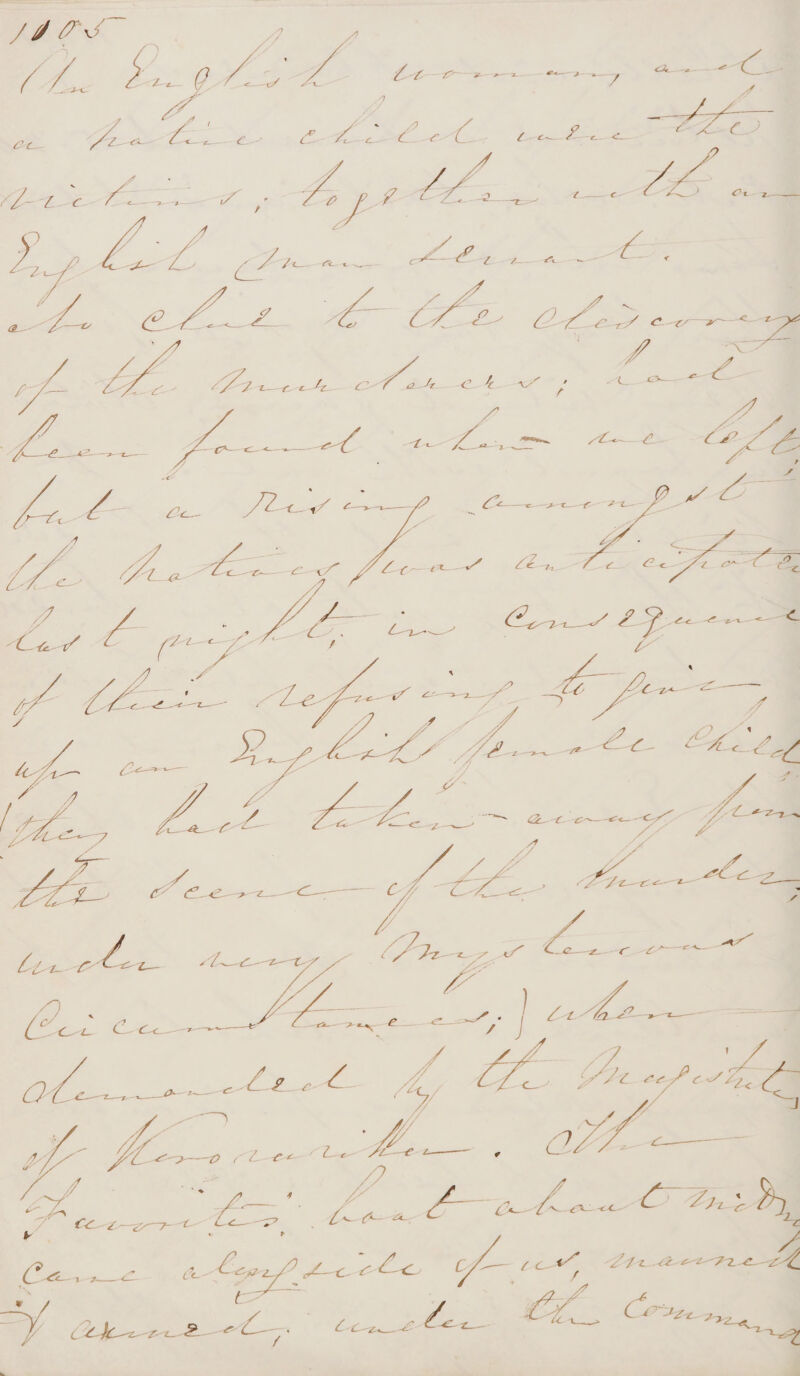 1005
An English woman, and
a native child were the
victims; together with an
English man servant.
No clue to the discovery
of the murderers; had
been found when we left,
but a rising amongst
the natives was anticipated
last night, in consequence
of their refusing to give
up an English female child
(they had taken away from
the scene of the murder,
under very mysterious
circumstances;) when
demanded by the Magistrate,
of Kororarika. The
Favorites' boat about midday
came alongside of us, manned
& armed, under the command